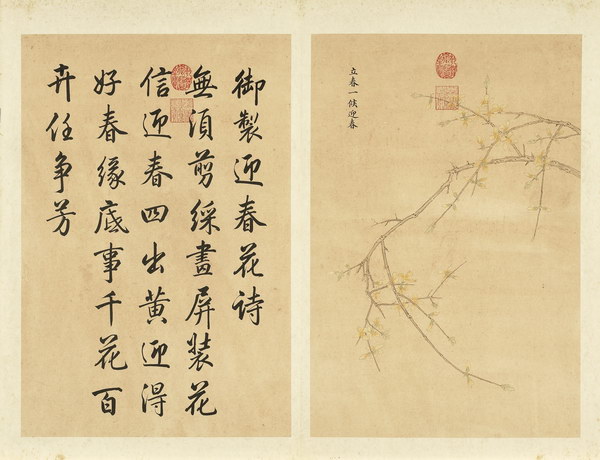 立春一候迎春
御製迎春花詩
無湏剪綵畫屏裝花
信迎春四出黃迎得
好春緣底事千花百
卉任爭芳